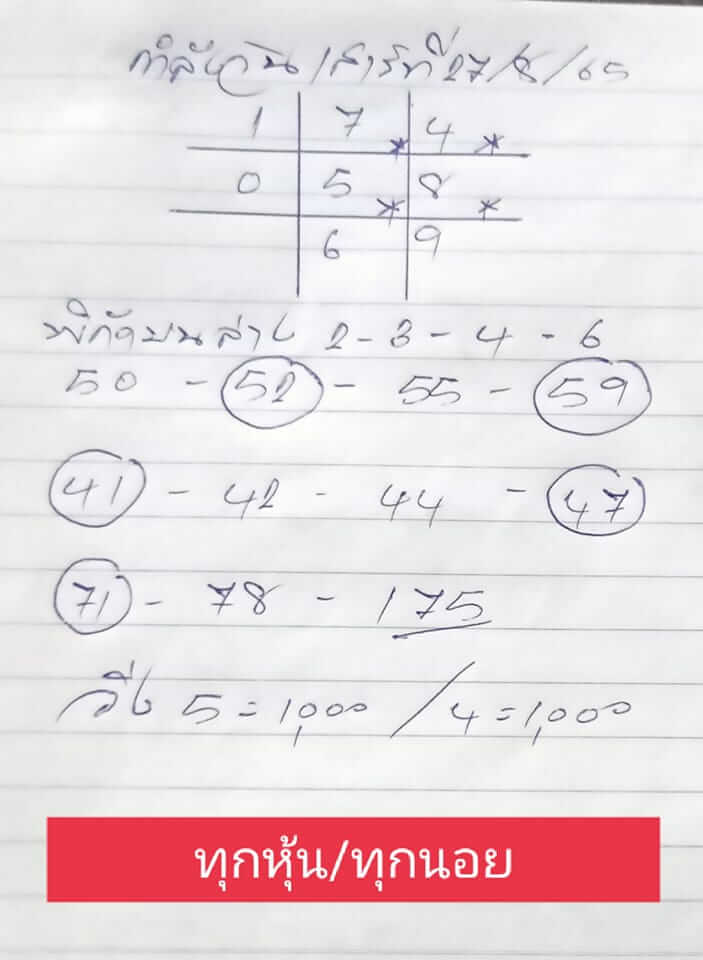 กำลังวัน เสาร์ที่ 27/8/65
1 7 4
0 5 8
6 9
พิกัดบนล่าง 2-3-4-6
50 - 52 - 55 - 59
41 - 42 - 44 - 47
71 - 78 - 175
วิ่ง 5=1,000 / 4=1,000
ทุกหุ้น/ทุกนอย